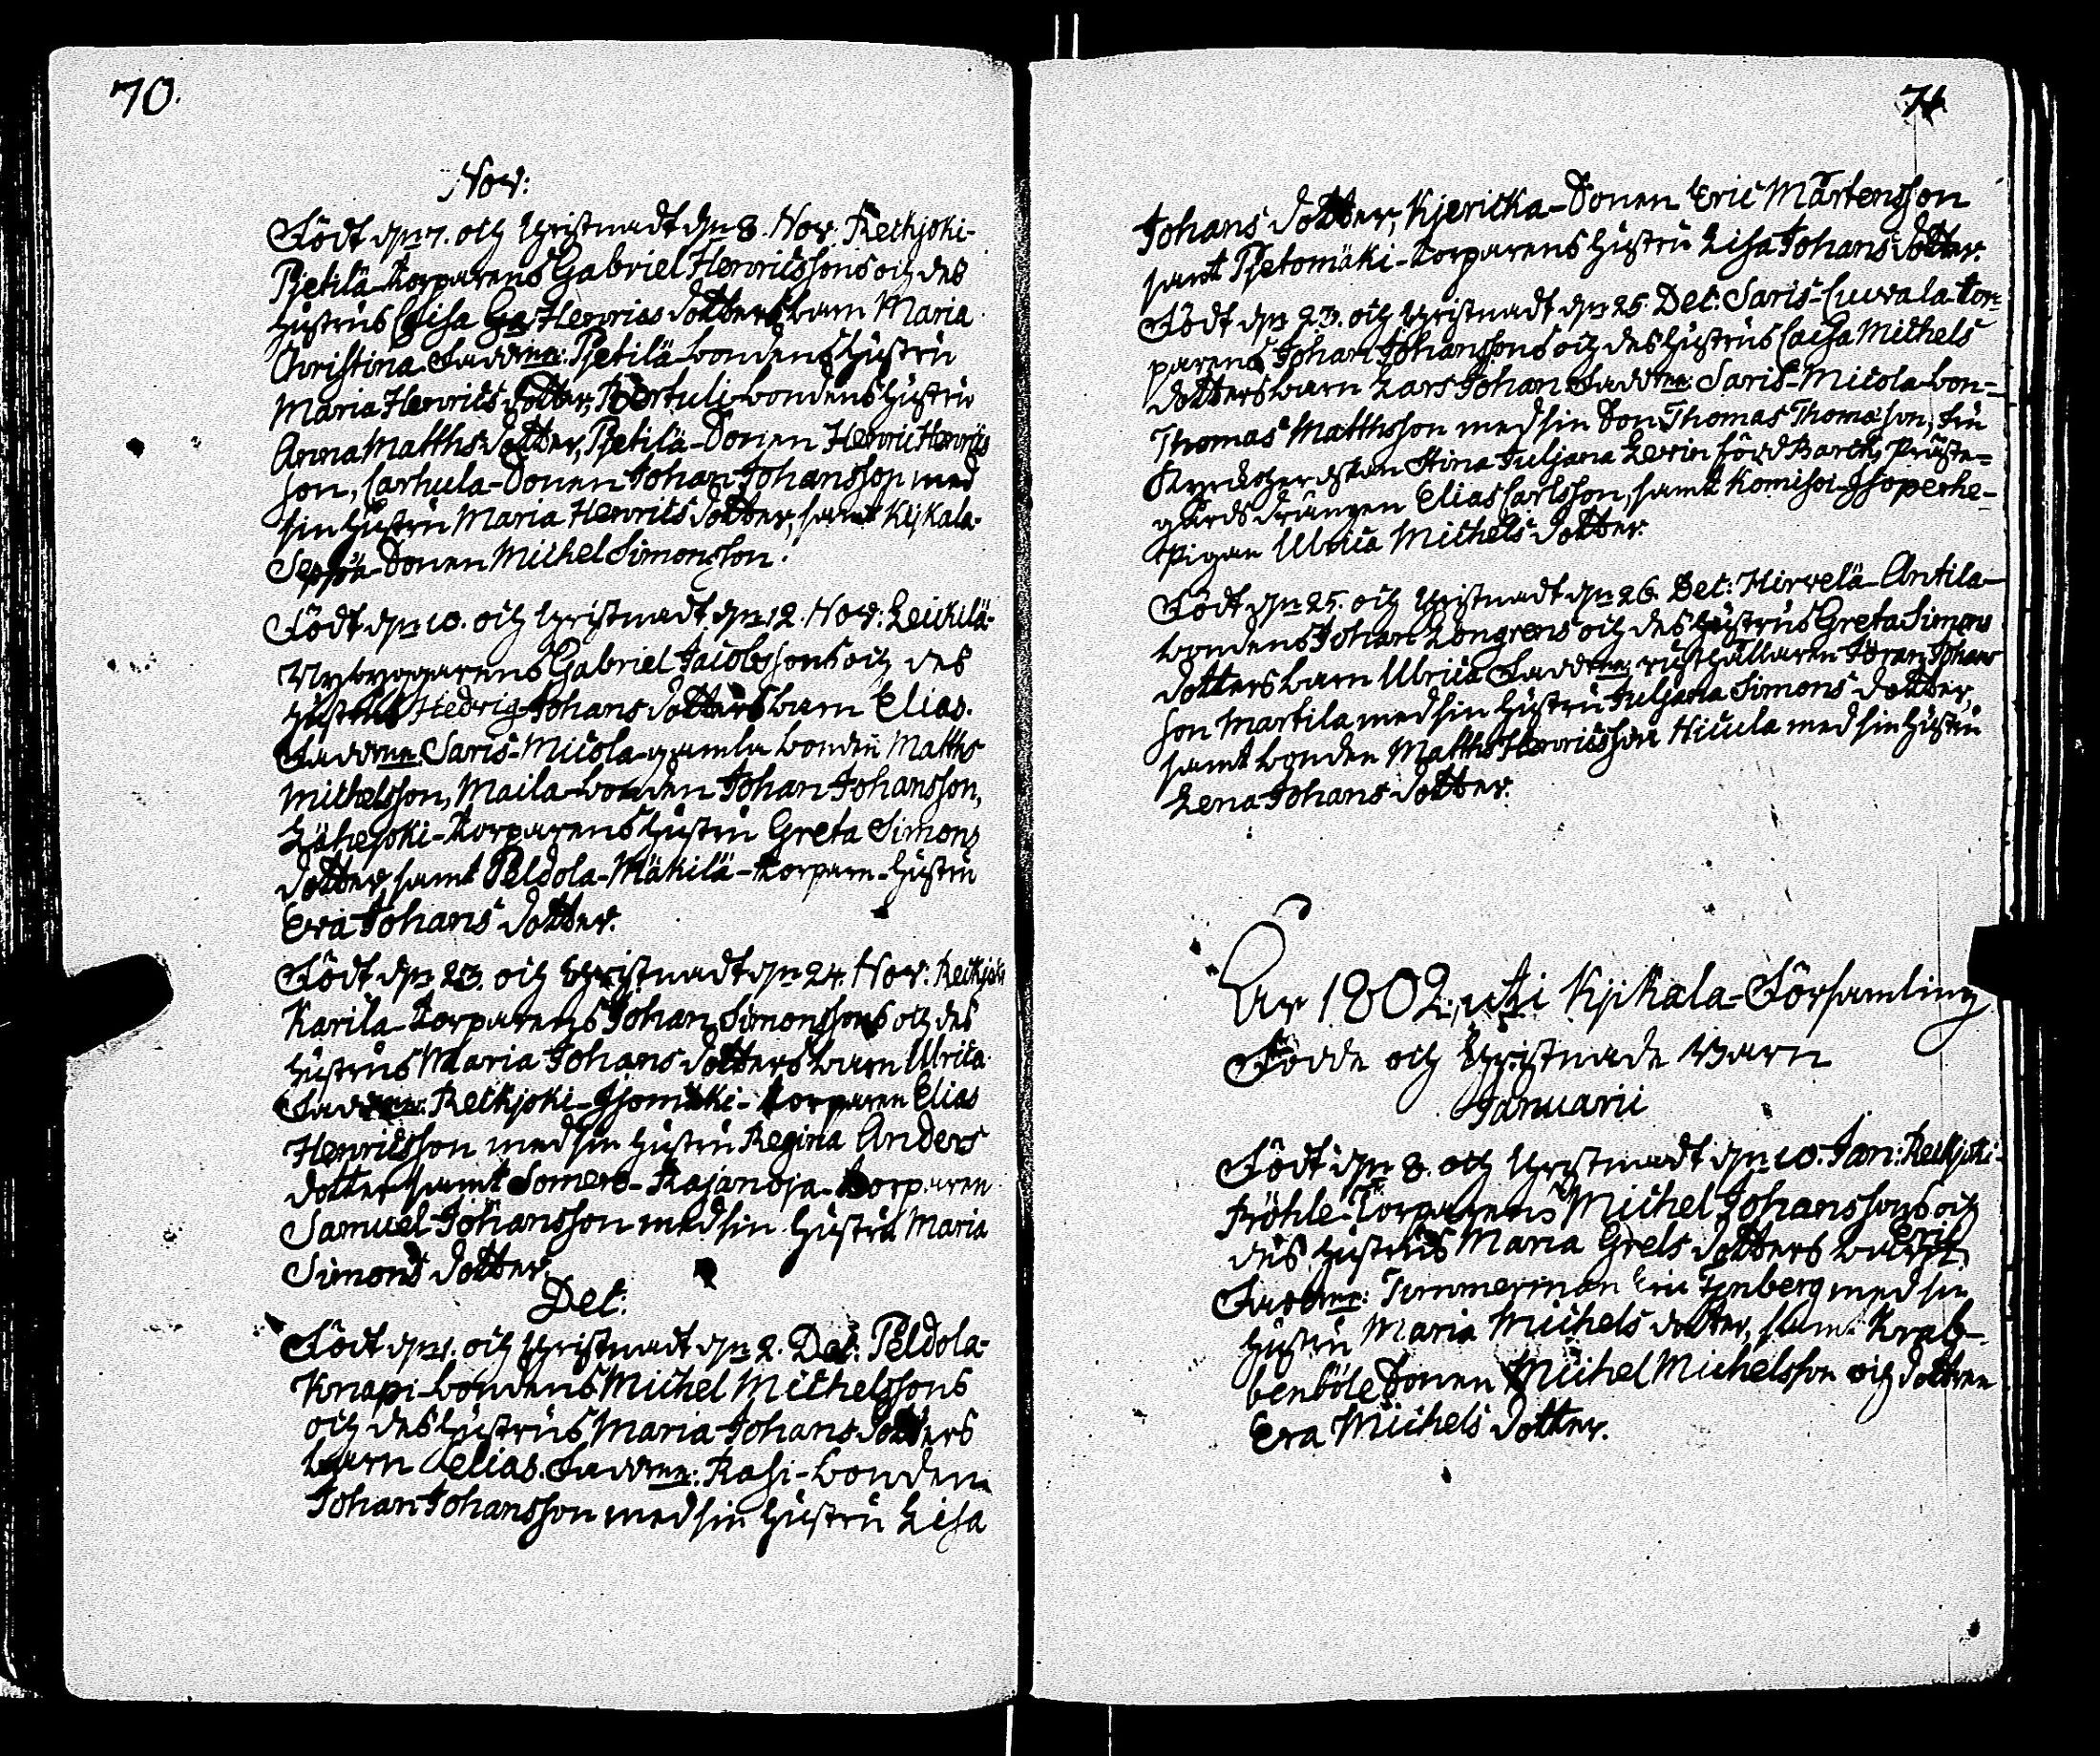 70.
Nov:
Födt d. 7. och Christnadt d. 8. Nov. Reckjoki-
Pjetilä-Torparens Gabriel Henricssons och des
hustrus Caisa Henrics dotters barn Maria
Christina. Faddrar: Pjetilä-bondens hustru
Maria Henrics dotter, Pörtuli-bondens hustru
Anna Matths dotter, Pjetilä-Sonen Henric Henrics
son, Carhula-Sonen Johan Johansson med
sin hustru Maria Henrics dotter, samt Kijkala-
Seppä-Sonen Michel Simonsson.
Födt d. 10. och Christnadt d. 12. Nov: Leickilä-
Nybyggarens Gabriel Jacobssons och des
hustrus Hedvig Johans dotters barn Elias.
Faddrar: Saris-Micola-gamla bonden Matths
Michelsson, Maila-bonden Johan Johansson,
Lähejoki-Torparens hustru Greta Simons
dotter, samt Peldola-Mäkilä-Torparn-hustru
Eva Johans dotter.
Födt d. 23. och Christnadt d. 24. Nov: Reckjoki
Karila-Torparens Johan Simonssons och des
hustrus Maria Johans dotters barn Ulrica
Faddrar: Reckjoki-Isomäki-torparen Elias
Henricsson med sin hustru Regina Anders
dotter samt Somero-Rajanoja-Torparen
Samuel Johansson med sin hustru Maria
Simons dotter.
Dec:
Födt d. 1. och Christnadt d. 2. Dec: Peldola-
Knapi-bondens Michel Michelssons
och des hustrus Maria Johans dotters
barn Elias. Faddrar: Rasi-bonden
Johan Johansson med sin hustru Lisa
71
Johans dotter, Kjericka-Sonen Eric Mårtensson
samt Pjetomäki-Torparens hustru Lisa Johans dotter.
Födt d. 23. och Christnadt d. 25. Dec: Saris-Cuvala tor-
parens Johan Johanssons och des hustrus Caisa Michels
dotters barn Lars Johan. Faddrar: Saris-Micola-bon-
Thomas Matthsson med sin Son Thomas Thomason, Fru
Kyrckoherdskan Stina Juljana Levin född Barck, Präste-
gårds drängen Elias Carlsson, samt Komisoi-Isoperhe-
pigan Ulrica Michels dotter.
Födt d. 25. och Christnadt d. 26. Dec: Hirvelä-Antila-
bondens Johan Longrens och des hustrus Greta Simons
dotters barn Ulrica. Faddrar: rusthållaren Jöran Johans
son Martila med sin hustru Juljana Simons dotter,
samt bonden Matths Henricsson Hicula med sin hustru
Lena Johans dotter.
År 1802, uti Kijkala-Församling
Födde och Christnade Barn
Januarii
Födt d. 8. och Christnadt d. 10. Jan: Reckjoki-
Pröhle-Torparens Michel Johanssons och
des hustrus Maria Grels dotters barn Eric
Faddrar: Timmerman Eric Tenberg med sin
hustru Maria Michels dotter, samt Krab-
benböle Sonen Michel Michelsson och dottren
Eva Michels dotter.